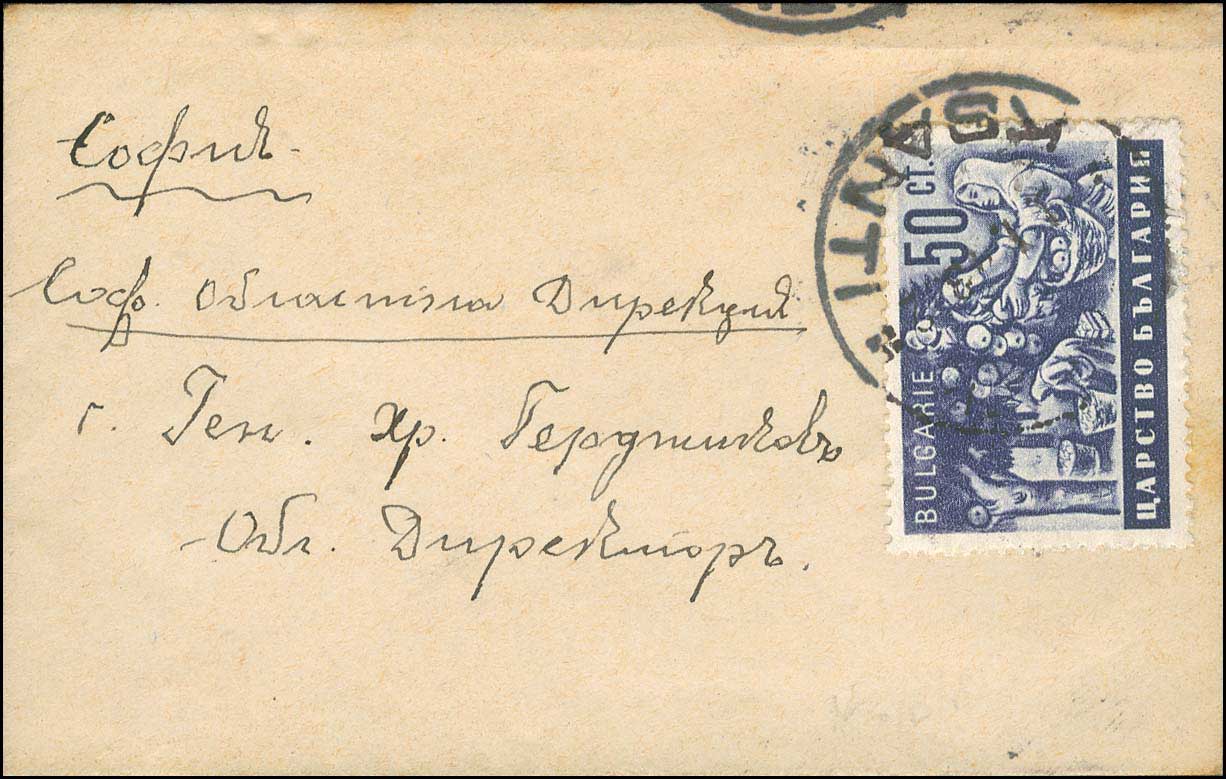 София.
Соф. Областна Дирекция
г. Ген. Хр. Герджиковъ
Обл. Директоръ.
50 СТ.
BULGARIE
ЦАРСТВО БЪЛГАРИЯ